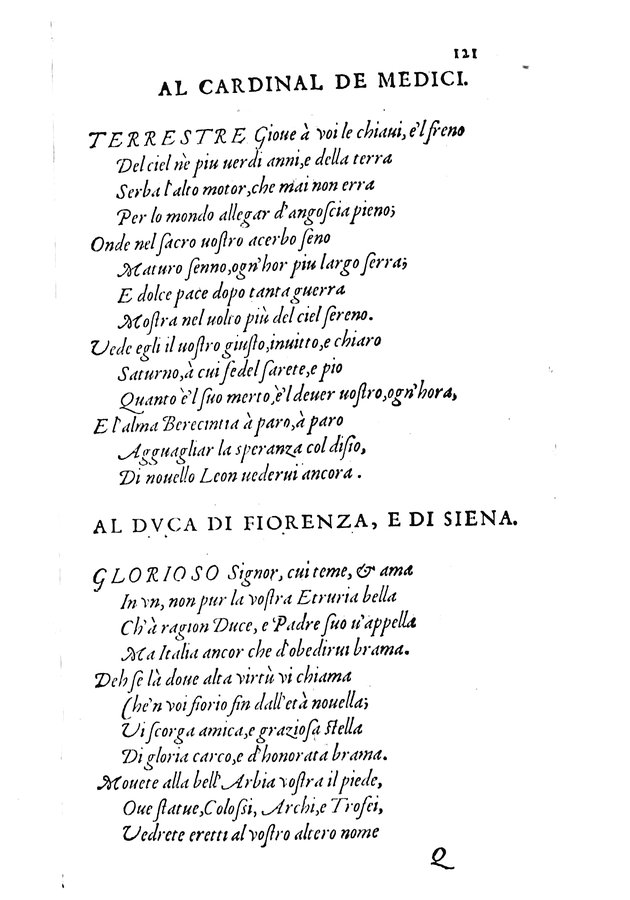 121
AL CARDINAL DE MEDICI.
TERRESTRE Gioue à voi le chiaui, e'l freno
Del ciel ne piu uerdi anni, e della terra
Serba l'alto motor, che mai non erra
Per lo mondo allegar d'angoſcia pieno;
Onde nel ſacro uoſtro acerbo ſeno
Maturo ſenno, ogn'hor piu largo ſerra;
E dolce pace dopo tanta guerra
Moſtra nel uolto più del ciel ſereno.
Vede egli il uoſtro giuſto, inuitto, e chiaro
Saturno, à cui fedel ſarete, e pio
Quanto è'l ſuo merto, e'l deuer uoſtro, ogn'hora,
E l'alma Berecintia à paro, à paro
Agguagliar la speranza col diſio,
Di nouello Leon uederui ancora.
AL DVCA DI FIORENZA, E DI SIENA.
GLORIOSO Signor, cui teme, & ama
In vn, non pur la voſtra Etruria bella
Ch'à ragion Duce, e Padre ſuo u'appella
Ma Italia ancor che d'obedirui brama.
Deh ſe là doue alta virtù vi chiama
Che'n voi fiorio fin dall'età nouella;
Vi ſcorga amica, e grazioſa ſtella
Di gloria carco, e d'honorata brama.
Mouete alla bell'Arbia voſtra il piede,
Oue ſtatue, Coloſsi, Archi, e Trofei,
Vedrete eretti al voſtro altero nome
Q